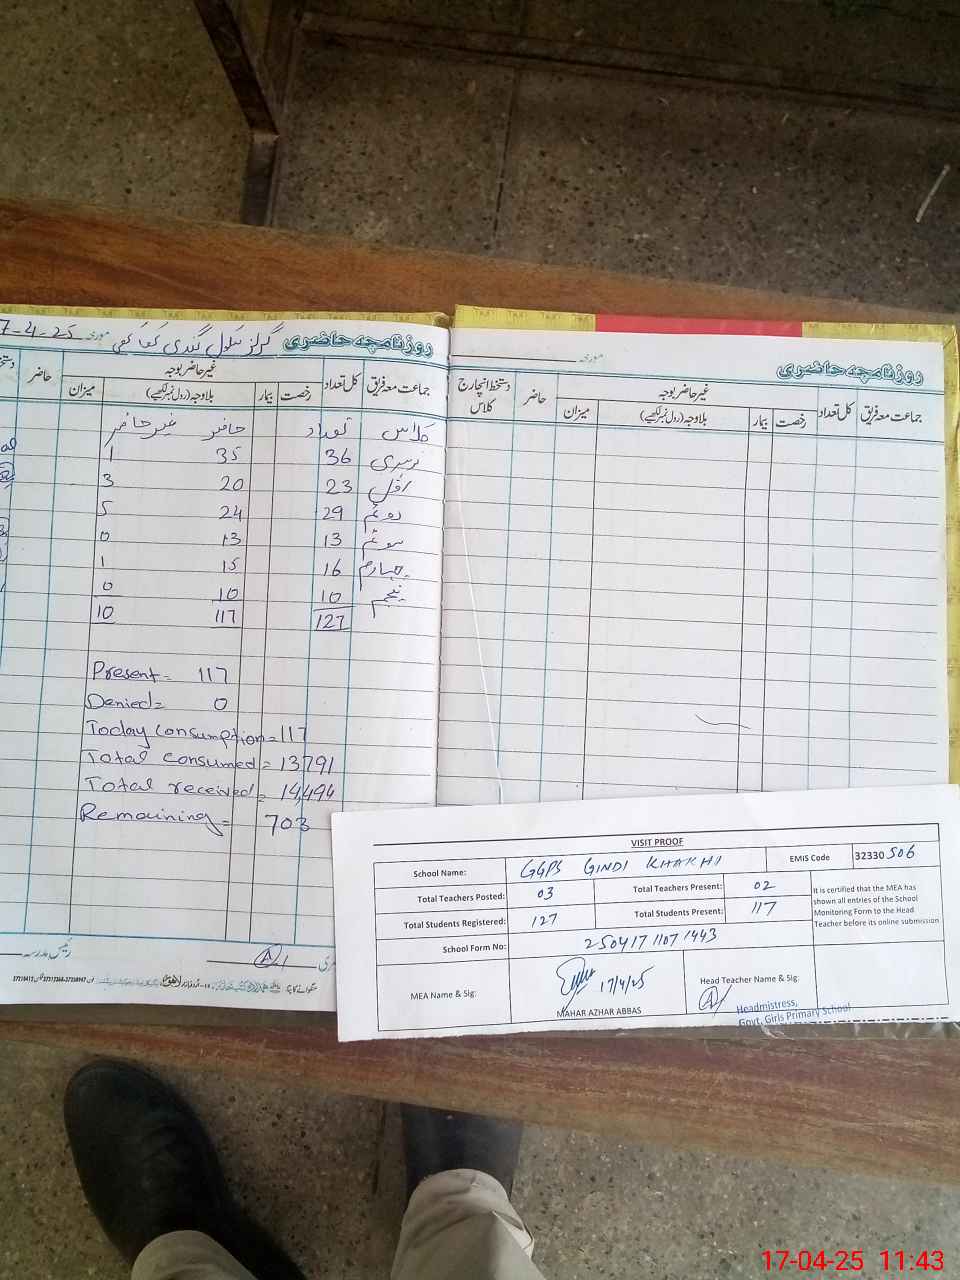 روزنامچہ حاضری گرلز سکول گندی کھاکھی مورخہ 7-4-25
جماعت معہ فریق کل تعداد رخصت بیمار غیر حاضر بوجہ بلاوجہ (رول نمبر لکھیے) میزان حاضر
کلاس تعداد حاضر غیر حاضر
نرسری 36 35 1
اول 23 20 3
دوئم 29 24 5
سوئم 13 13 0
چہارم 16 15 1
پنجم 10 10 0
127 117 10
Present = 117
Denied = 0
Today Consumption = 117
Total consumed = 13791
Total received = 14,494
Remaining = 703
رئیس مدرسہ
روزنامچہ حاضری
مورخہ
جماعت معہ فریق کل تعداد رخصت بیمار غیر حاضر بوجہ بلاوجہ (رول نمبر لکھیے) میزان حاضر دستخط انچارج کلاس
VISIT PROOF
School Name: GGPS GINDI KHAKHI EMIS Code 32330 506
Total Teachers Posted: 03 Total Teachers Present: 02
Total Students Registered: 127 Total Students Present: 117
School Form No: 250417 1107 1443
It is certified that the MEA has
shown all entries of the School
Monitoring Form to the Head
Teacher before its online submission
MEA Name & Sig: 17/4/25
MAHAR AZHAR ABBAS
Head Teacher Name & Sig:
Headmistress,
Govt. Girls Primary School
17-04-25 11:43